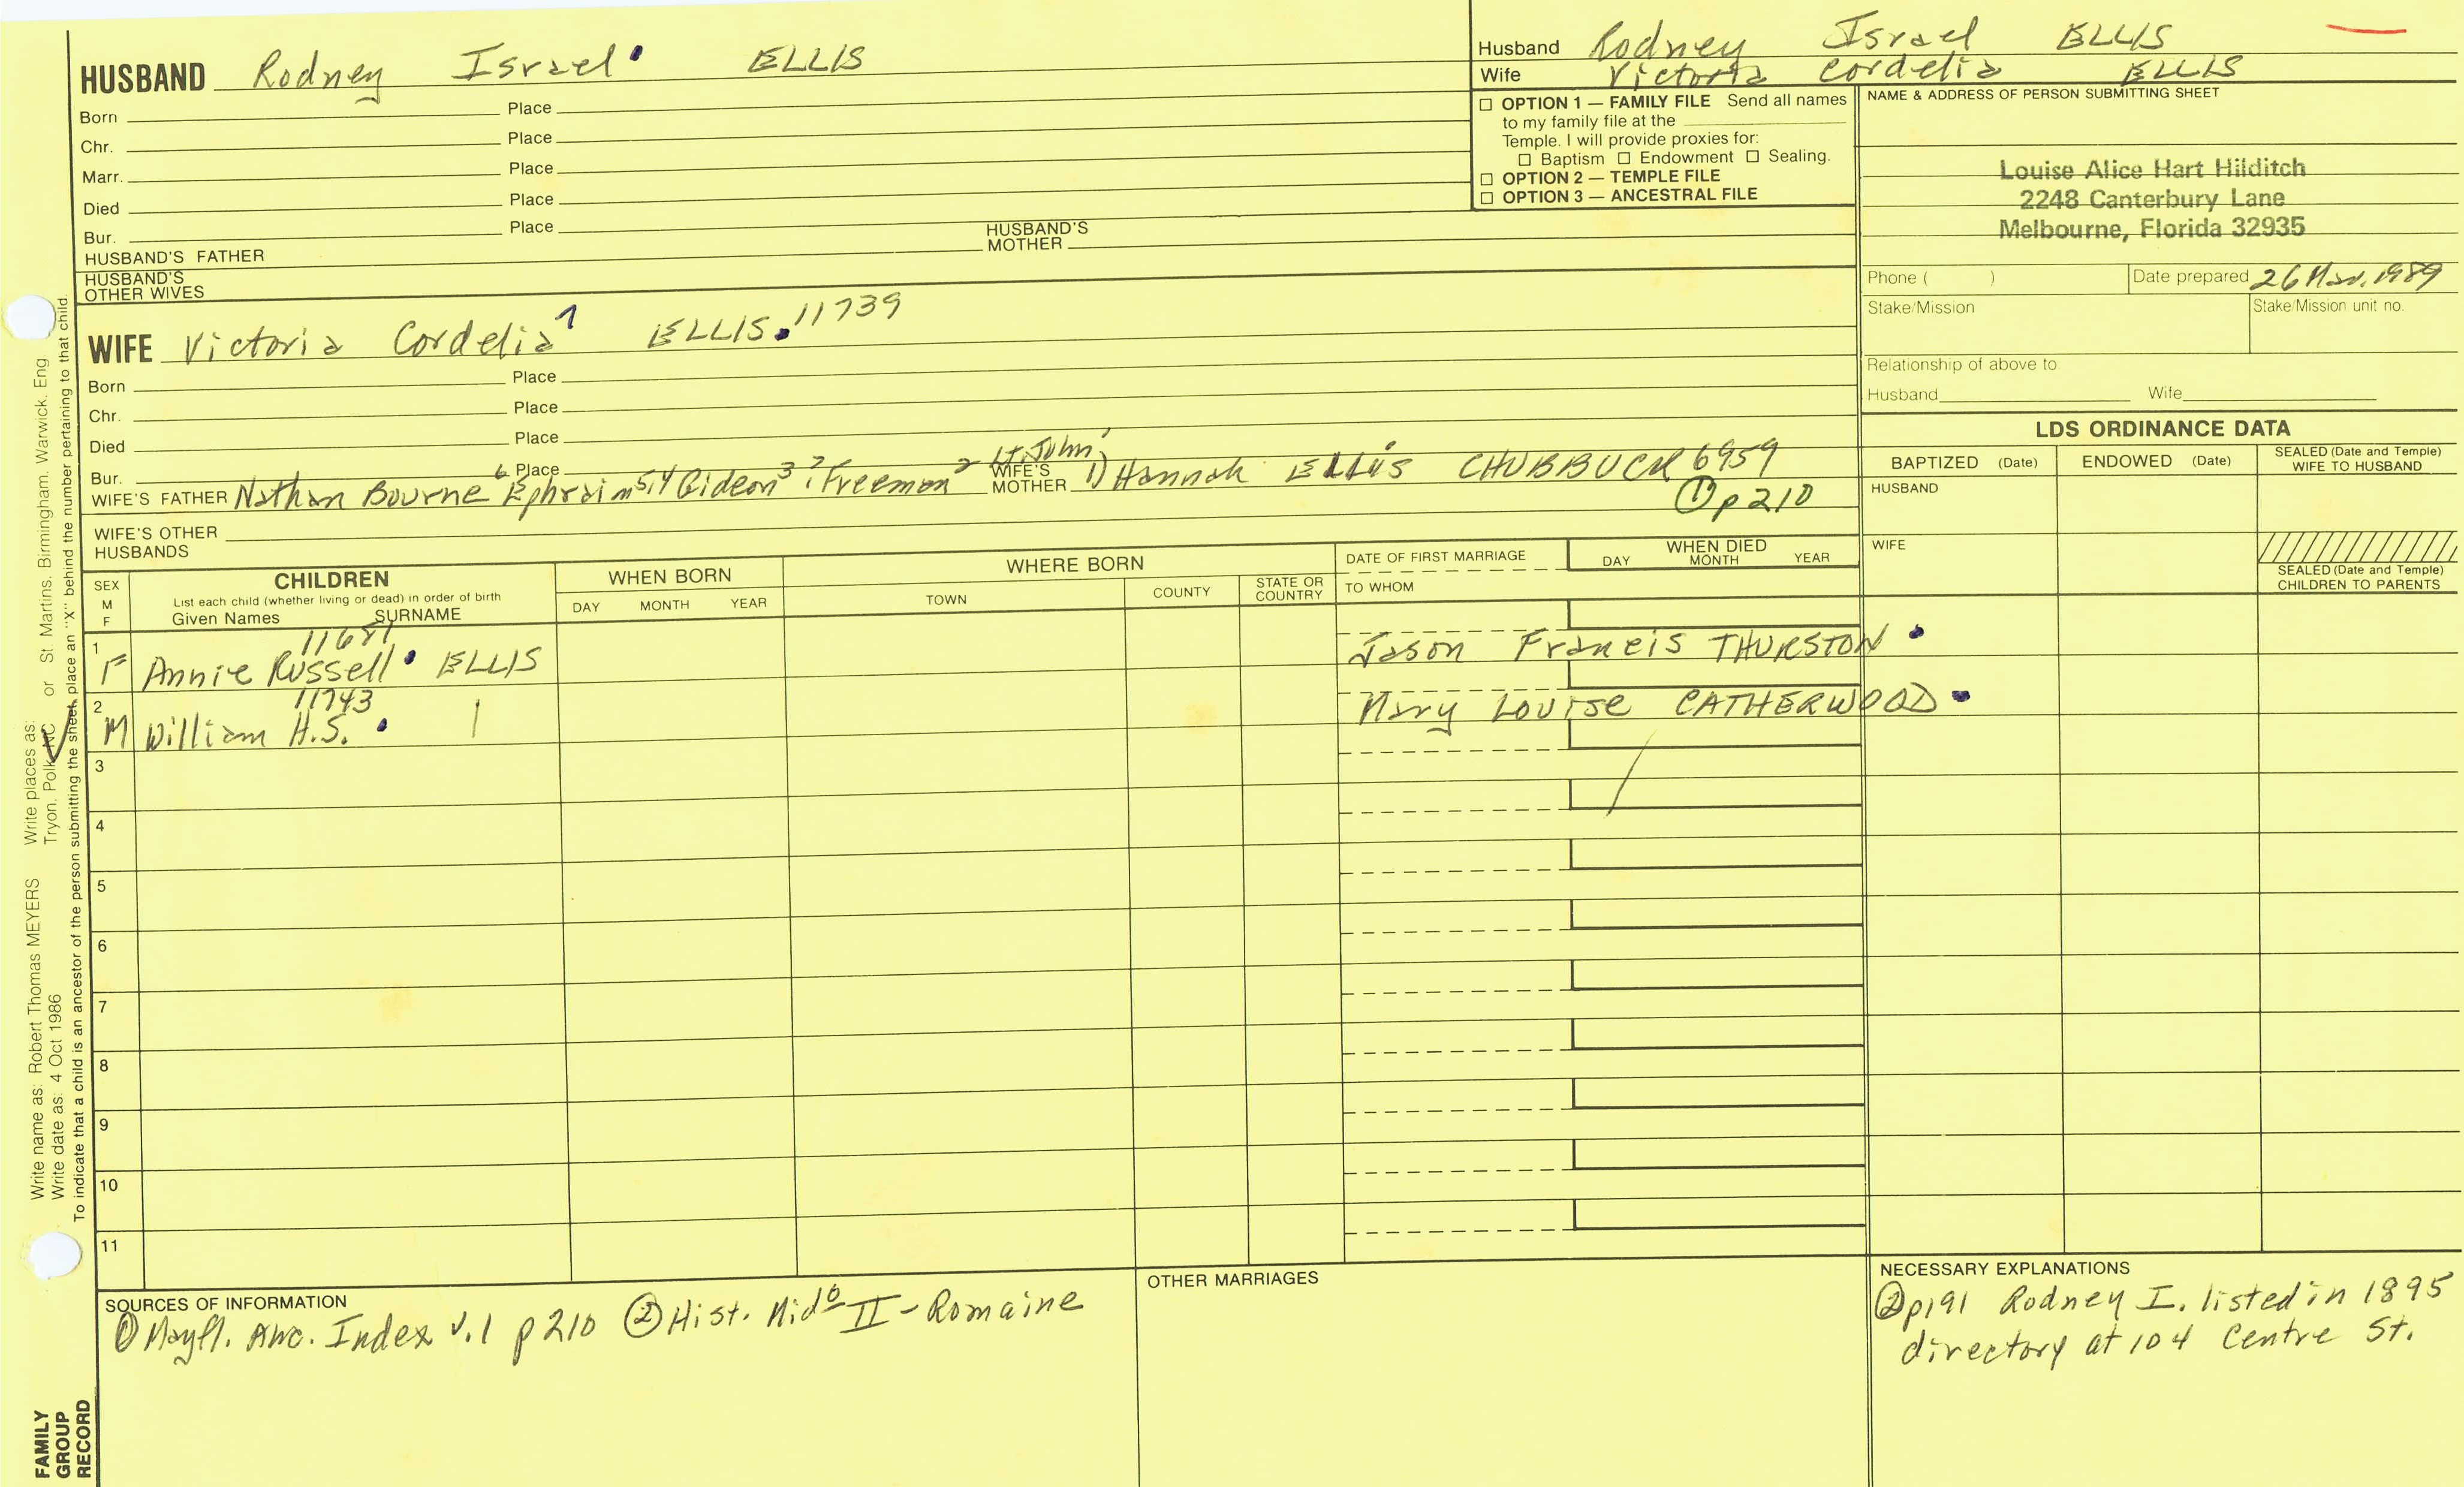 HUSBAND Rodney Israel ELLIS
Born Place
Chr. Place
Marr. Place
Died Place
Bur. Place
HUSBAND'S FATHER HUSBAND'S MOTHER
HUSBAND'S OTHER WIVES
Husband Rodney Israel ELLIS
Wife Victoria Cordelia ELLIS
☐ OPTION 1 — FAMILY FILE Send all names
to my family file at the
Temple. I will provide proxies for:
☐ Baptism ☐ Endowment ☐ Sealing.
☐ OPTION 2 — TEMPLE FILE
☐ OPTION 3 — ANCESTRAL FILE
NAME & ADDRESS OF PERSON SUBMITTING SHEET
Louise Alice Hart Hilditch
2248 Canterbury Lane
Melbourne, Florida 32935
Phone ( ) Date prepared 26 Mar. 1989
Stake/Mission Stake/Mission unit no.
Relationship of above to
Husband Wife
WIFE Victoria Cordelia 7 ELLIS. 11739
Born Place
Chr. Place
Died Place
Bur. Place
WIFE'S FATHER Nathan Bourne 6 Ephraim 5,4 Gideon 3 Freeman 2 Lt. John 1 WIFE'S MOTHER 1) Hannah ELLIS CHUBBUCK 6959
① p 210
WIFE'S OTHER HUSBANDS
LDS ORDINANCE DATA
BAPTIZED (Date) ENDOWED (Date) SEALED (Date and Temple) WIFE TO HUSBAND
HUSBAND
WIFE
SEALED (Date and Temple) CHILDREN TO PARENTS
SEX M F
CHILDREN
List each child (whether living or dead) in order of birth
Given Names SURNAME
WHEN BORN
DAY MONTH YEAR
WHERE BORN
TOWN COUNTY STATE OR COUNTRY
DATE OF FIRST MARRIAGE
TO WHOM
WHEN DIED
DAY MONTH YEAR
1 F 11681 Annie Russell ELLIS Jason Francis THURSTON
2 M 11743 William H.S. | Mary Louise CATHERWOOD
3
4
5
6
7
8
9
10
11
SOURCES OF INFORMATION
① Mayfl. Anc. Index v.1 p 210 ② Hist. Mid b II - Romaine
OTHER MARRIAGES
NECESSARY EXPLANATIONS
② p191 Rodney I. listed in 1895
directory at 104 Centre St.
Write name as: Robert Thomas MEYERS Write places as:
Write date as: 4 Oct 1986 Tryon, Polk, NC or St Martins. Birmingham. Warwick. Eng
To indicate that a child is an ancestor of the person submitting the sheet, place an "X" behind the number pertaining to that child.
FAMILY
GROUP
RECORD